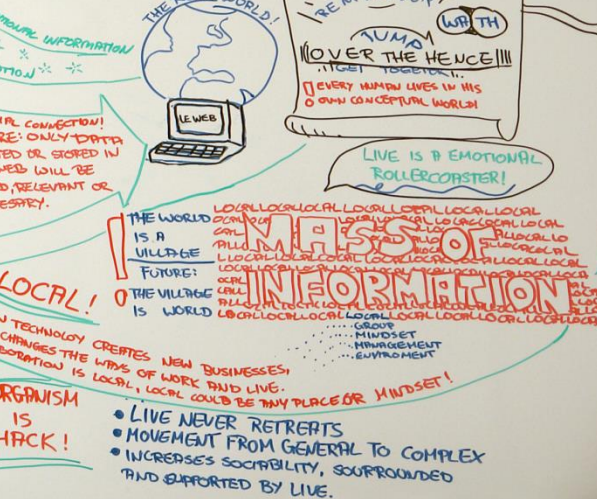 THE REAL WORLD!
ONAL INFORMATION
ATION
LE WEB
WA TH
JUMP
OVER THE HENCE
GET TOGETHER
EVERY HUMAN LIVES IN HIS
OWN CONCEPTUAL WORLD!
LIVE IS A EMOTIONAL
ROLLERCOASTER!
AL CONNECTION!
RE: ONLY DATA
TED OR STORED IN
WEB WILL BE
D, RELEVANT OR
ESSARY.
THE WORLD
IS A
VILLAGE
FUTURE:
THE VILLAGE
IS WORLD
MASS OF
INFORMATION
LOCALLOCALLOCALLOCALLOCALLOCALLOCALLOCAL
GROUP
MINDSET
MANAGEMENT
ENVIROMENT
LOCAL!
N TECHNOLOY CREATES NEW BUSINESSES,
CHANGES THE WAYS OF WORK AND LIVE.
BORATION IS LOCAL, LOCAL COULD BE ANY PLACE OR MINDSET!
RGANISM
IS
HACK!
• LIVE NEVER RETREATS
• MOVEMENT FROM GENERAL TO COMPLEX
• INCREASES SOCIABILITY, SOURROUNDED
AND SUPPORTED BY LIVE.